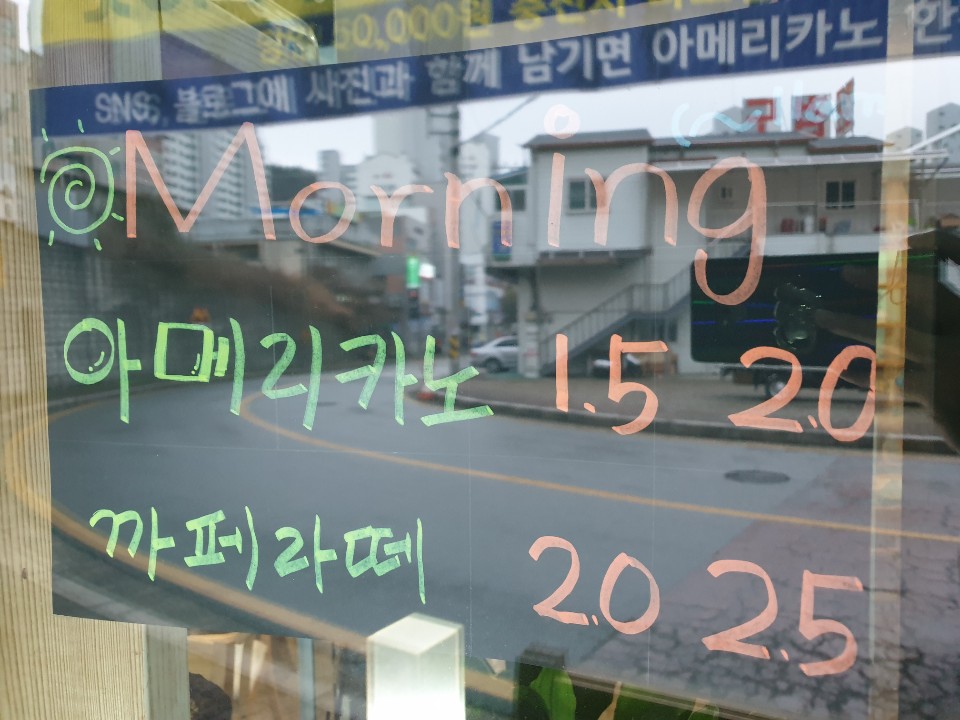 50,000원 충전시
SNS, 블로그에 사진과 함께 남기면 아메리카노 한
Morning
아메리카노 1.5 2.0
까페라떼 2.0 2.5